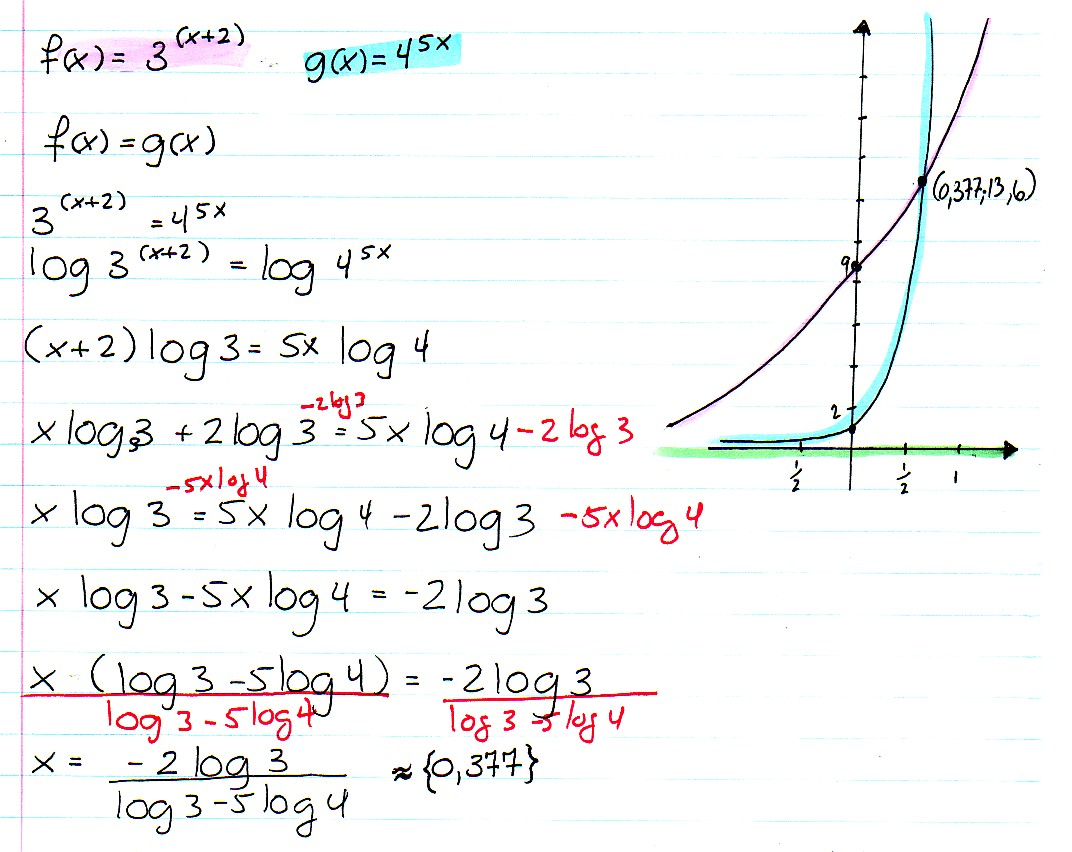 f(x) = 3^(x+2) g(x) = 4^5x
f(x) = g(x)
3^(x+2) = 4^5x
log 3^(x+2) = log 4^5x
(x+2) log 3 = 5x log 4
-2log3
x log 3 + 2 log 3 = 5x log 4 -2 log 3
-5xlog4
x log 3 = 5x log 4 - 2 log 3 -5x log 4
x log 3 - 5x log 4 = -2 log 3
x · (log 3 - 5 log 4) = -2 log 3
log 3 - 5 log 4 log 3 - 5 log 4
x = -2 log 3 ≈ {0,377}
log 3 - 5 log 4
(0,377;13,6)
9
2
1/2 1/2 1